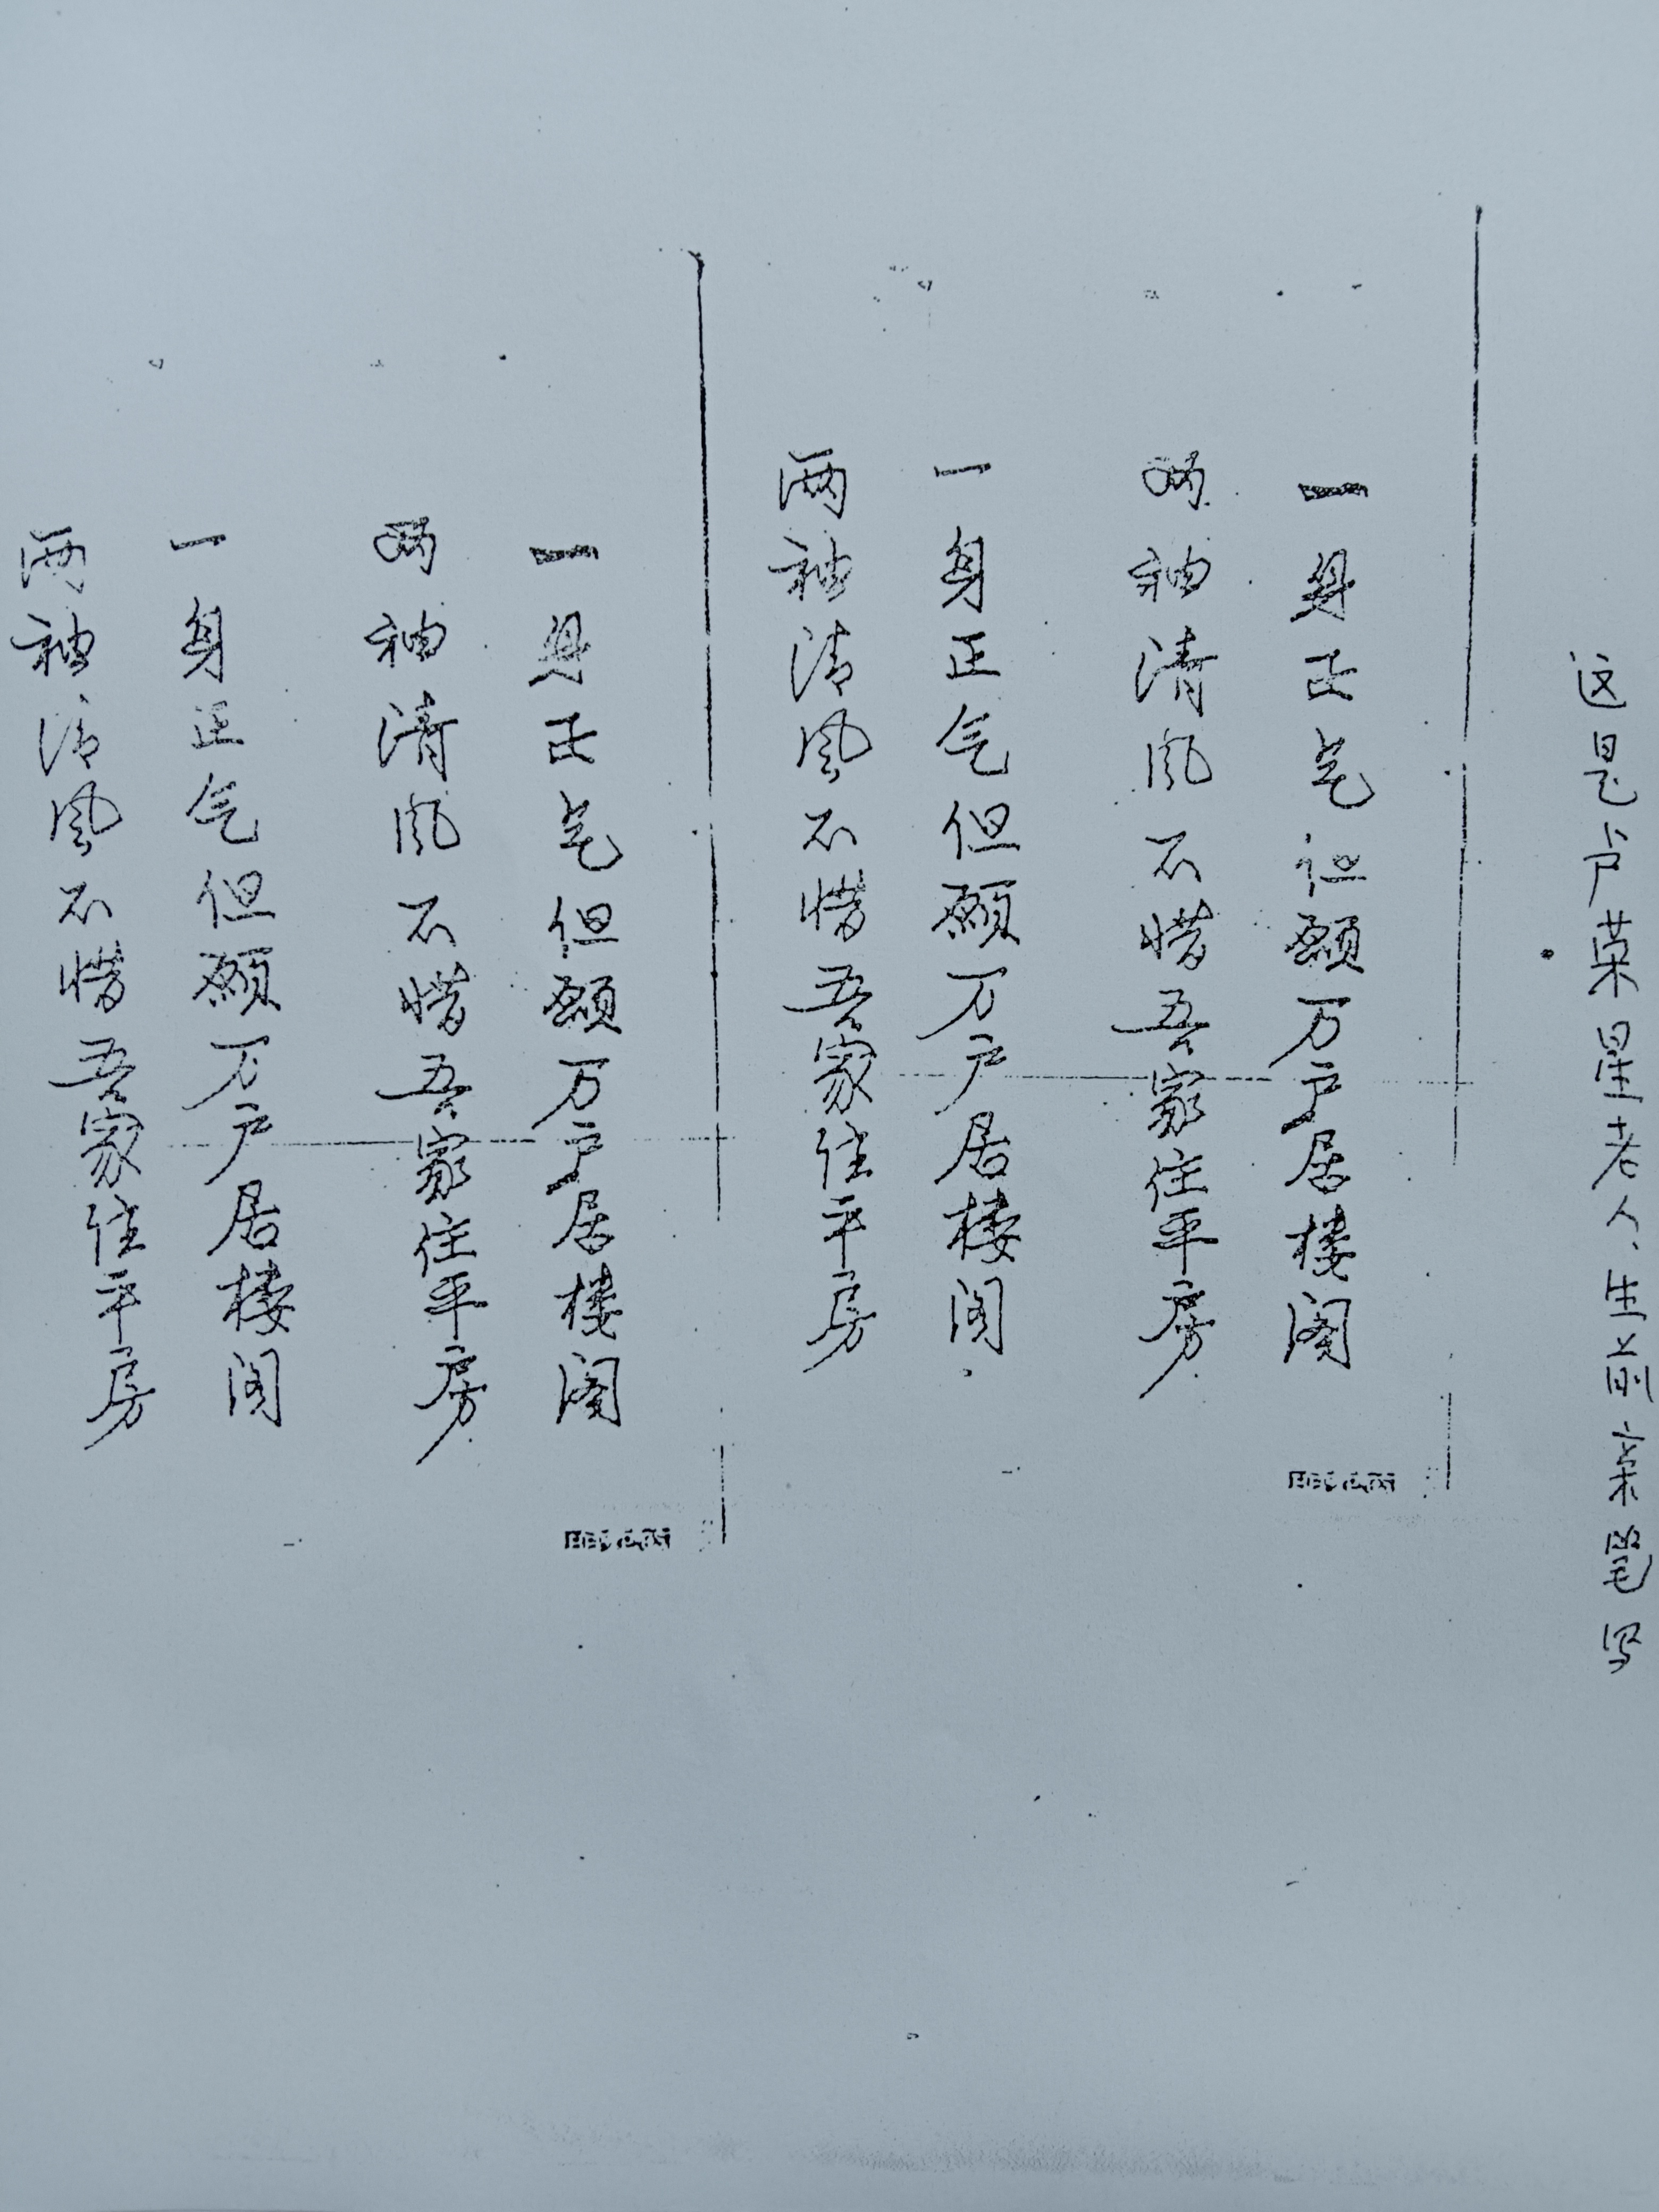 这是卢荣星老人生前亲笔写
一身正气但愿万户居楼阁
两袖清风不惜吾家住平房
一身正气但愿万户居楼阁
两袖清风不惜吾家住平房
一身正气但愿万户居楼阁
两袖清风不惜吾家住平房
一身正气但愿万户居楼阁
两袖清风不惜吾家住平房